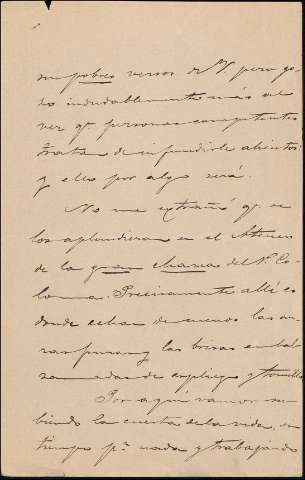 mis pobres versos de V. pero go-
zo indudablemente más al
ver q. personas competentes
tratan de infundirle alientos:
y ellos por algo será.
No me extrañó q. se
los aplaudieran en el Ateneo
de la gran charca del P. Co-
loma. Precisamente allí es
donde echan de menos las au-
ras puras y las brisas embal-
samadas de espliego y tomillo
Por aquí vamos su-
biendo la cuesta de la vida, sin
tiempo pa. nada y trabajando